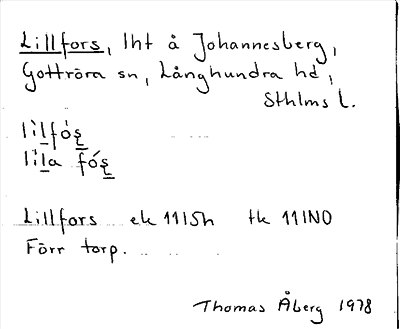 Lillfors, lht å Johannesberg,
Gottröra sn, Långhundra hd,
Sthlms l.
lìlfós̱
lìla fós̱
Lillfors ek 11I5h tk 11INO
Förr torp.
Thomas Åberg 1978